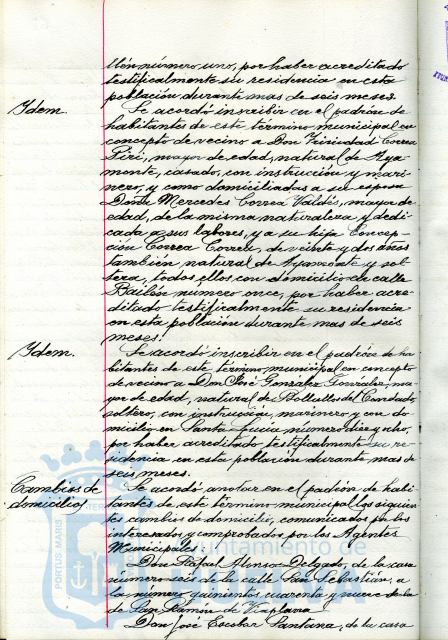 llén número uno, por haber acreditado
testificalmente su residencia en esta
población durante mas de seis meses.
Ydem.
Se acordó inscribir en el padrón de
habitantes de este término municipal en
concepto de vecino a Don Trinidad Correa
Piri, mayor de edad, natural de Aya-
monte, casado, con instrucción y mari-
nero, y como domiciliadas a su esposa
Doña Mercedes Correa Valdés, mayor de
edad, de la misma naturaleza y dedi-
cada a sus labores, y a su hija Concep-
ción Correa Correa, de veinte y dos años
también, natural de Ayamonte y sol-
tera, todos ellos con domicilio en calle
Bailén número once, por haber acre-
ditado testificalmente su residencia
en esta población durante mas de seis
meses.
Ydem.
Se acordó inscribir en el padrón de ha-
bitantes de este término municipal en concepto
de vecino a Don José González González, ma-
yor de edad, natural de Bollullos del Condado,
soltero, con instrucción, marinero y con do-
micilio en Santa Lucía número diez y ocho,
por haber acreditado testificalmente su re-
sidencia en esta población durante mas de
seis meses.
Cambios de
domicilios
Se acordó anotar en el padrón de habi-
tantes de este término municipal los siguien-
tes cambios de domicilio, comunicados por los
interesados y comprobados por los Agentes
Municipales.
Don Rafael Alonso Delgado, de la casa
número seis de la calle San Sebastián, a
la número quinientos cuarenta y nueve de la
de San Ramón de Viaplana
Don José Escobar Santana, de la casa
PORTUS MARIS
Ayuntamiento de